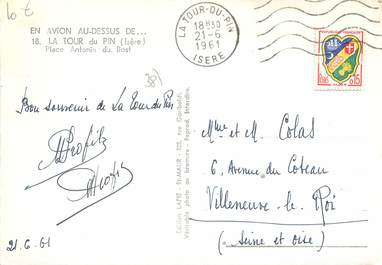 10 €
EN AVION AU-DESSUS DE...
18. LA TOUR du PIN (Isère)
Place Antonin du Bost
LA TOUR-DU-PIN
18H30
21-6
1961
ISERE
REPUBLIQUE FRANCAISE
0,15
38
Bon souvenir de La Tour du Pin
21.6.61
Edition LAPIE - St-MAUR - 123, rue Garibaldi.
Véritable photo au bromure - Reprod. Interdite.
Mme et M. Colas
6, Avenue du Coteau
Villeneuve-le-Roi
(Seine et oise)